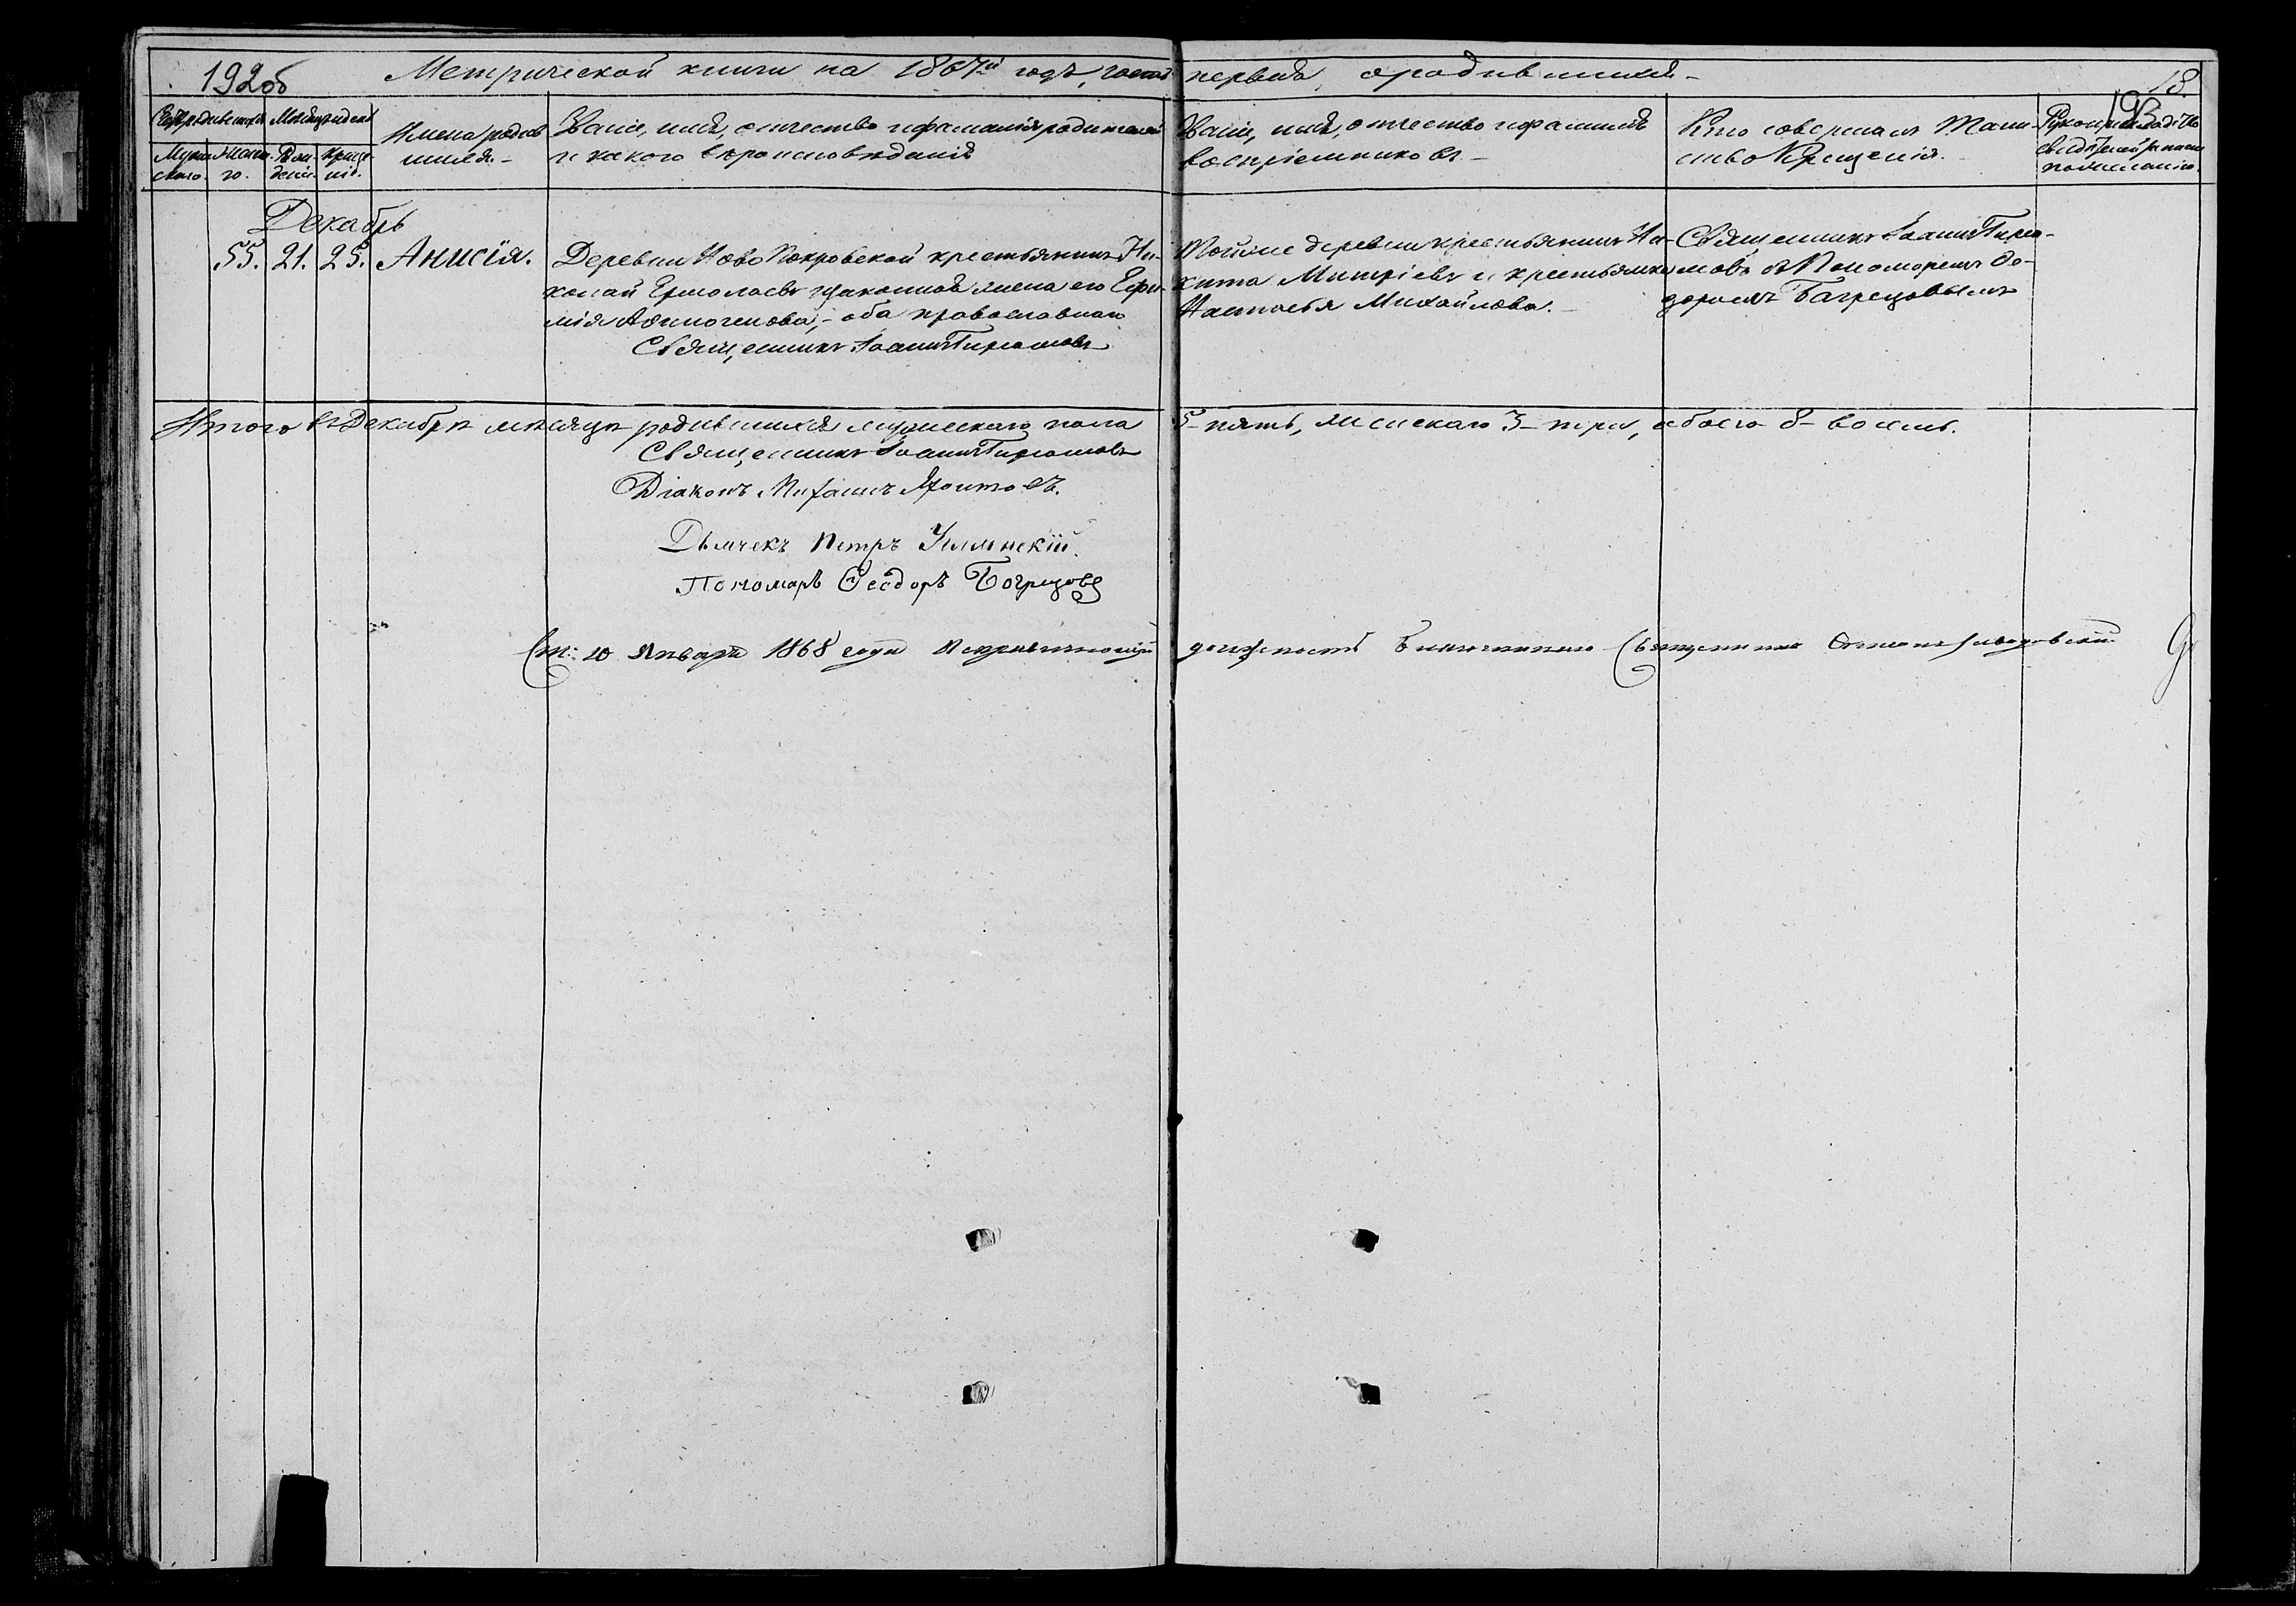 192об
18.
193
Метрической книги на 1867й годъ, часть первая, о родившихся
Счетъ родившихся
Мужеска го.
Женска го.
Мѣсяцъ и день
Рож денія.
Креще нія.
Имена родив
шихся.
Званіе, имя, отчество и фамилія родителей
и какого вѣроисповѣданія
Званіе, имя, отчество и фамилія
воспріемниковъ
Кто совершалъ Таин-
ство Крещенія.
Рукоприкладство
свидѣтелей записи
по желанію.
Декабрь
55. 21. 25. Анисія.
Деревни Ново Покровской крестьянинъ Ни-
колай Ермолаевъ и законная жена его Ефи-
мія Афиногенова, оба православнаго
Священникъ Іоаннъ
Тойже деревни крестьянинъ Ни-
кита Митріевъ и крестьянка
Настасья Михайлова.
Священникъ Іоаннъ
съ Пономоремъ Ѳе-
доромъ Багрецовымъ
Итого въ Декабрѣ мѣсяцѣ родившихся мужескаго пола 5 пять, женскаго 3 три, обоего 8 восемь.
Священникъ Іоаннъ
Діаконъ
Дьячекъ Петръ
Пономарь Ѳеодоръ Багрецовъ
10 Января 1868 года Исправляющій должность Благочиннаго Священникъ